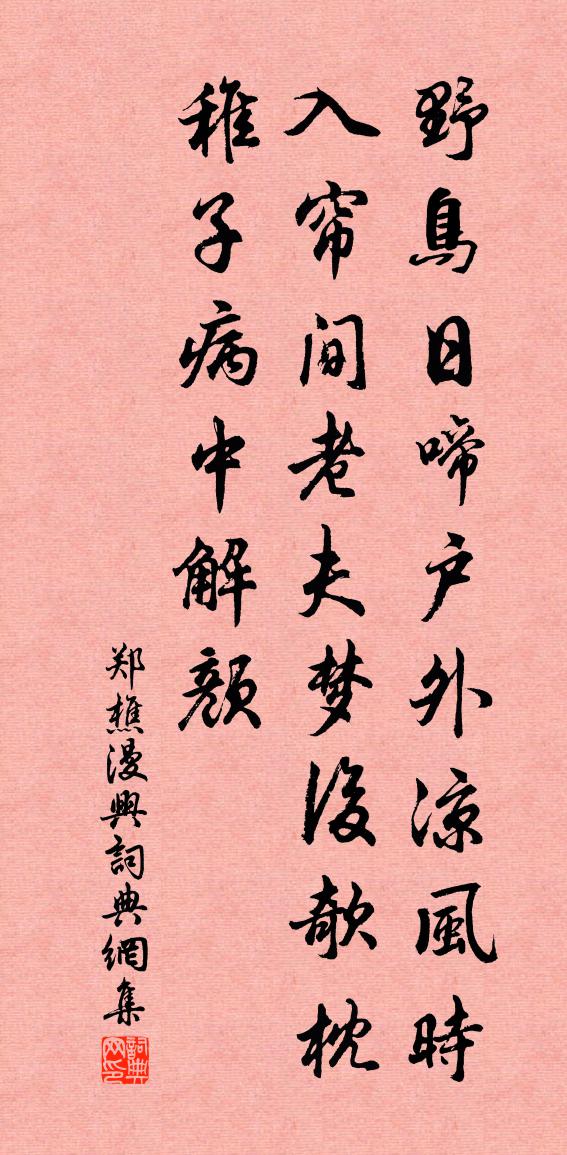 野鳥日啼户外凉風時
入帘间老夫梦後欹枕
稚子病中解颜
郑樵漫興詞典網集
詞典网印